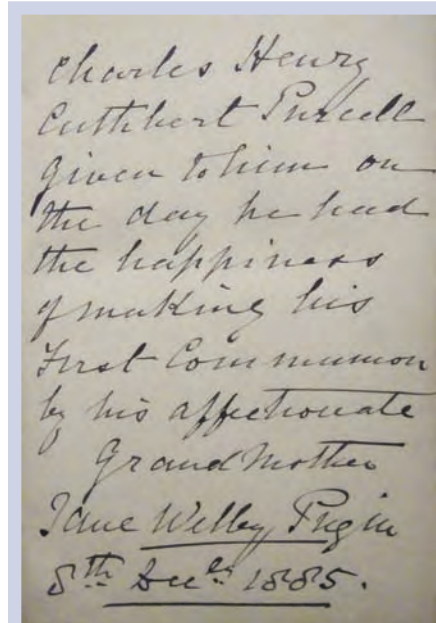 Charles Henry
Cuthbert Purcell
given to him on
the day he had
the happiness
of making his
First Communion
by his affectionate
Grand Mother
Jane Welby Pugin
8th Decr 1885.